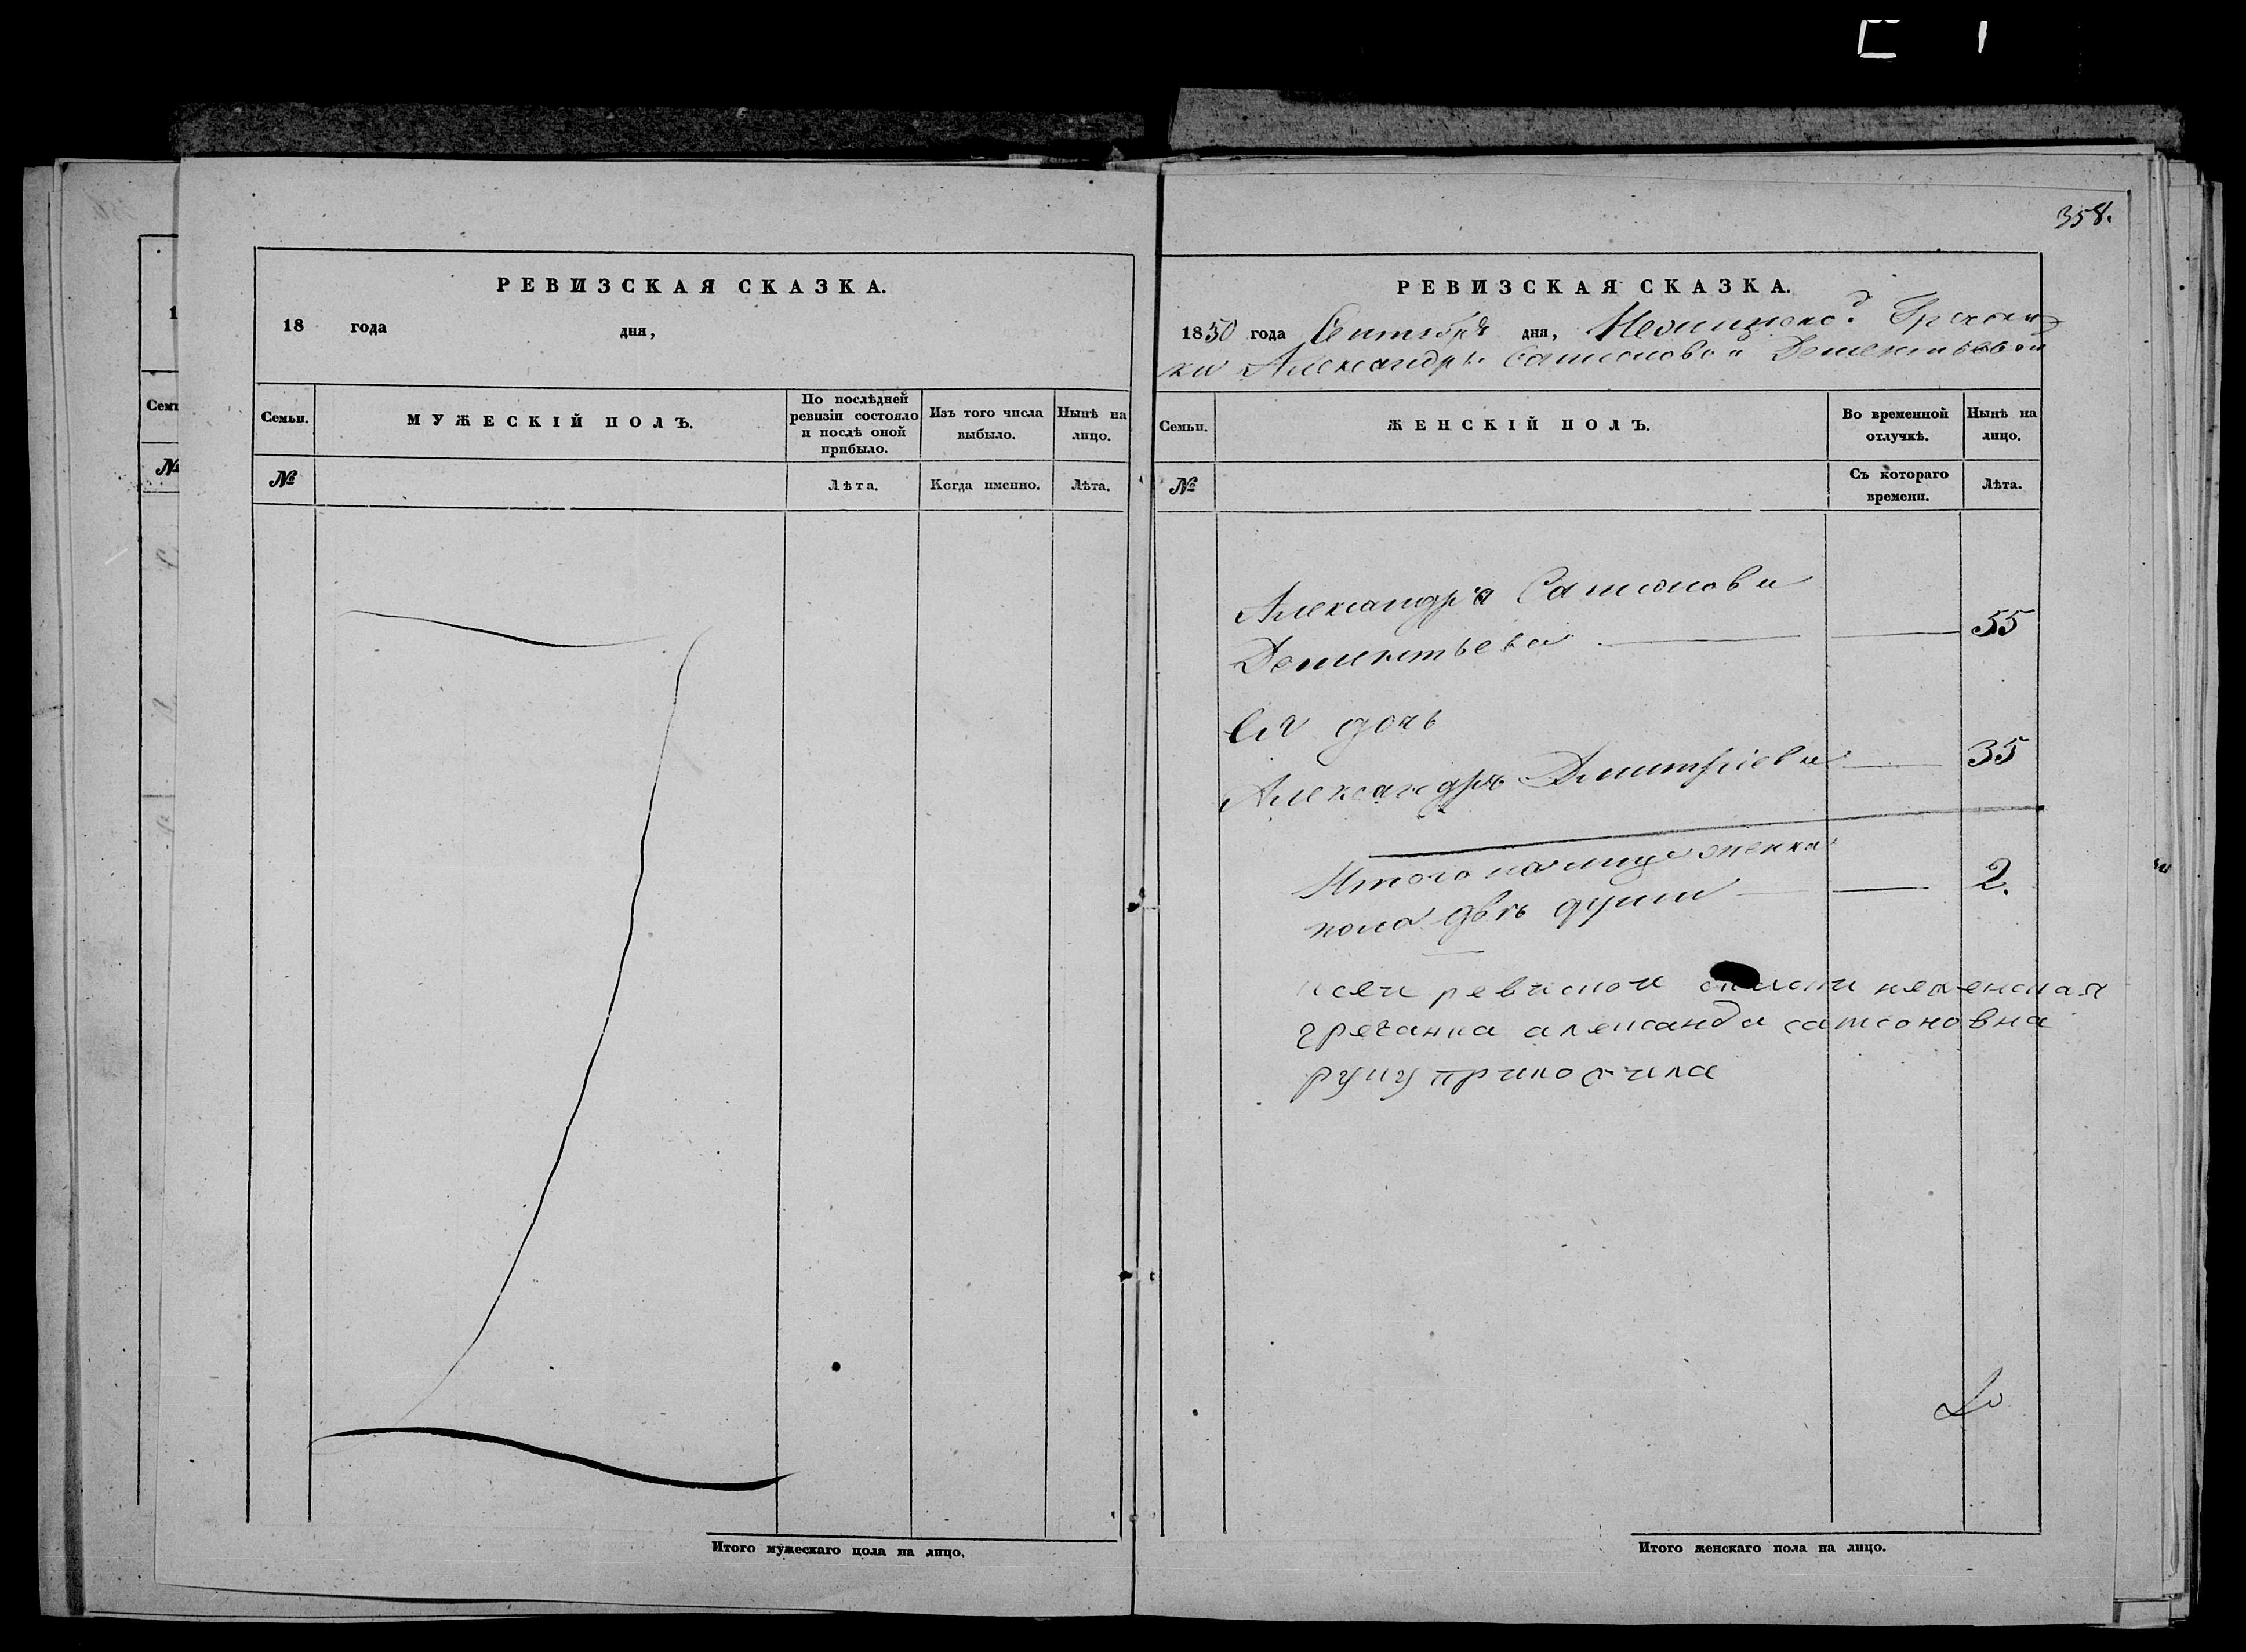 358.
РЕВИЗСКАЯ СКАЗКА.
18 года дня,
Семьи.
МУЖЕСКІЙ ПОЛЪ.
По послѣдней ревизіи состояло и послѣ оной прибыло.
Изъ того числа выбыло.
Нынѣ на лицо.
№
Лѣта.
Когда именно.
Лѣта.
Итого мужескаго пола на лицо.
РЕВИЗСКАЯ СКАЗКА.
1850 года Сентября дня, Гречан
ки Александры Самсоновой Дементьевой
Семьи.
ЖЕНСКІЙ ПОЛЪ.
Во временной отлучкѣ.
Нынѣ на лицо.
№
Съ котораго времени.
Лѣта.
Александра Самсонова
Дементьева 55
Ея дочь
Александра Дмитріева 35
Итого налицо женска
пола двѣ души 2.
ксеи ревиской неженская
гречанка александа самсоновна
руку приложила
Итого женскаго пола на лицо.